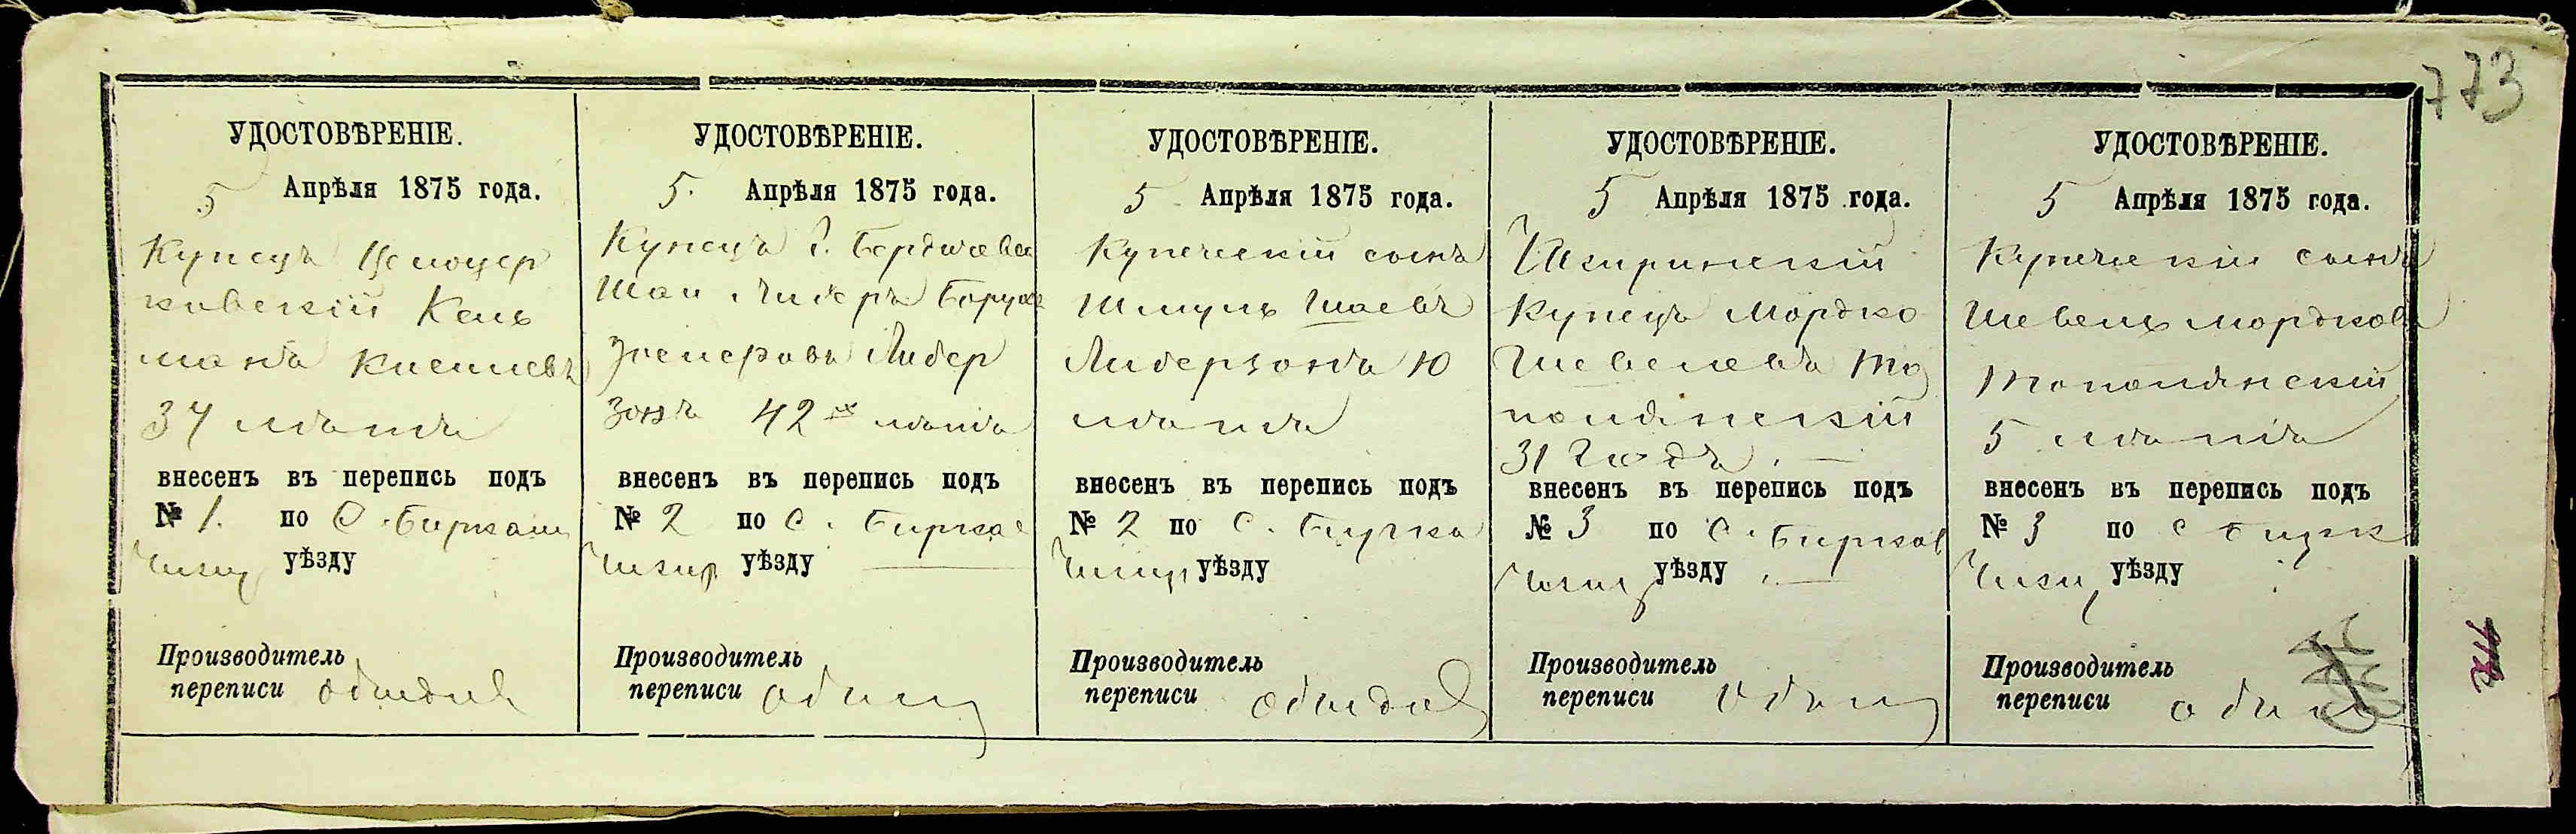 773
УДОСТОВѢРЕНІЕ.
5 Апрѣля 1875 года.
Купецъ Бѣлоцер
ковскій Кель
манъ
37 лѣтъ
внесенъ въ перепись подъ
№ 1. по С. Биркамъ
Чиги уѣзду
Производитель
переписи
УДОСТОВѢРЕНІЕ.
5. Апрѣля 1875 года.
Купецъ г. Бердичева
Шая Либеръ Борухъ
Либер
зонъ 42хъ лѣтъ
внесенъ въ перепись подъ
№ 2 по С. Биркам
Чигир уѣзду
Производитель
переписи
УДОСТОВѢРЕНІЕ.
5 Апрѣля 1875 года.
Купеческій сынъ
Шмуль Шаевъ
Либерзонъ 10
лѣтъ
внесенъ въ перепись подъ
№ 2 по С. Бирка
Чигир уѣзду
Производитель
переписи
УДОСТОВѢРЕНІЕ.
5 Апрѣля 1875 года.
Чигиринскій
Купецъ Мордко
Шевелевъ То
полянскій
31 годъ.
внесенъ въ перепись подъ
№ 3 по С. Биркам
Чигир уѣзду
Производитель
переписи
УДОСТОВѢРЕНІЕ.
5 Апрѣля 1875 года.
Купеческій сынъ
Шевель Мордковъ
Тополянскій
5 лѣтъ
внесенъ въ перепись подъ
№ 3 по С Бирк
Чиги уѣзду
Производитель
переписи